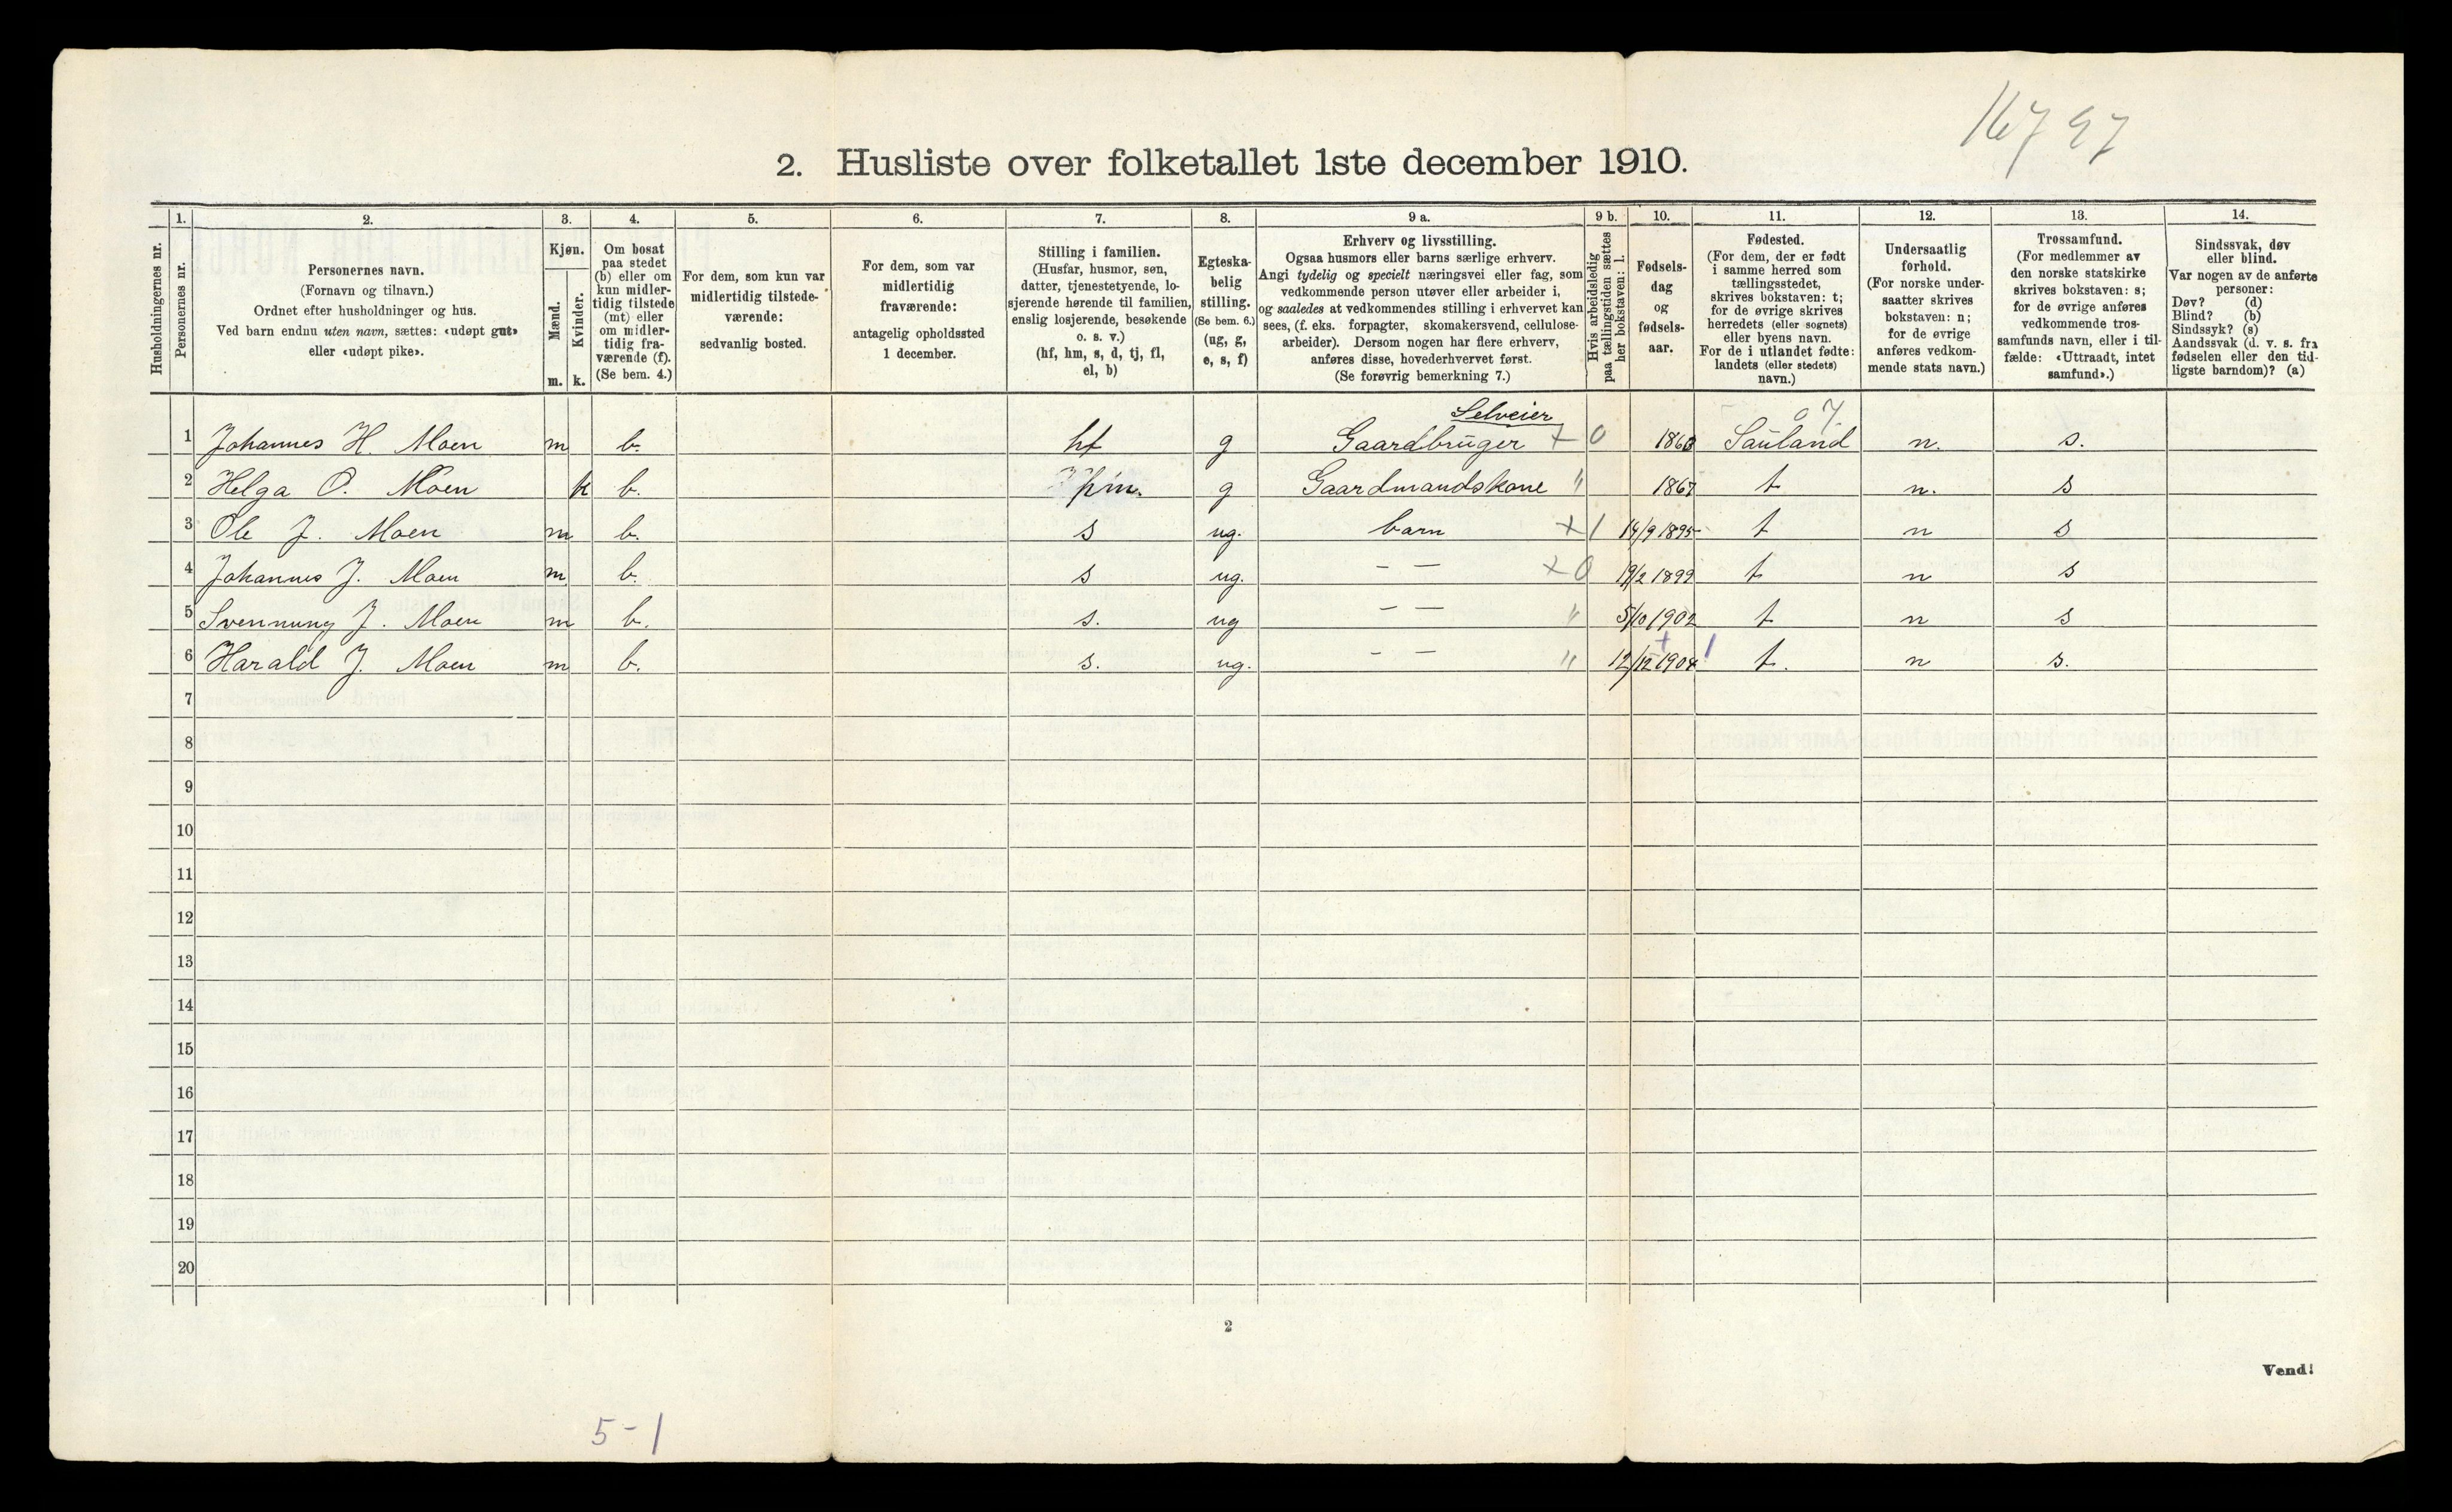 16797
2. Husliste over folketallet 1ste december 1910.
Husholdningernes nr.
1.
Personernes nr.
2.
Personernes navn.
(Fornavn og tilnavn.)
Ordnet efter husholdninger og hus.
Ved barn endnu uten navn, sættes: «udøpt gut»
eller «udøpt pike».
3.
Kjøn.
Mænd.
Kvinder.
m. k.
4.
Om bosat
paa stedet
(b) eller om
kun midler-
tidig tilstede
(mt) eller
om midler-
tidig fra-
værende (f).
(Se bem. 4.)
5.
For dem, som kun var
midlertidig tilstede-
værende:
sedvanlig bosted.
6.
For dem, som var
midlertidig
fraværende:
antagelig opholdssted
1 december.
7.
Stilling i familien.
(Husfar, husmor, søn,
datter, tjenestetyende, lo-
sjerende hørende til familien,
enslig losjerende, besøkende
o. s. v.)
(hf, hm, s, d, tj, fl,
el, b)
8.
Egteska-
belig
stilling.
(Se bem. 6.)
(ug, g,
e, s, f)
9 a.
Erhverv og livsstilling.
Ogsaa husmors eller barns særlige erhverv.
Angi tydelig og specielt næringsvei eller fag, som
vedkommende person utøver eller arbeider i,
og saaledes at vedkommendes stilling i erhvervet kan
sees, (f. eks. forpagter, skomakersvend, cellulose-
arbeider). Dersom nogen har flere erhverv,
anføres disse, hovederhvervet først.
(Se forøvrig bemerkning 7.)
9 b.
Hvis arbeidsledig
paa tællingstiden sættes
her bokstaven: l.
10.
Fødsels-
dag
og
fødsels-
aar.
11.
Fødested.
(For dem, der er født
i samme herred som
tællingsstedet,
skrives bokstaven: t;
for de øvrige skrives
herredets (eller sognets)
eller byens navn.
For de i utlandet fødte:
landets (eller stedets)
navn.)
12.
Undersaatlig
forhold.
(For norske under-
saatter skrives
bokstaven: n;
for de øvrige
anføres vedkom-
mende stats navn.)
13.
Trossamfund.
(For medlemmer av
den norske statskirke
skrives bokstaven: s;
for de øvrige anføres
vedkommende tros-
samfunds navn, eller i til-
fælde: «Uttraadt, intet
samfund».)
14.
Sindssvak, døv
eller blind.
Var nogen av de anførte
personer:
Døv? (d)
Blind? (b)
Sindssyk? (s)
Aandssvak (d. v. s. fra
fødselen eller den tid-
ligste barndom)? (a)
Selveier 07
1 Johannes H. Moen m b. hf g Gaardbruger + 0 1863 Sauland n. s.
2 Helga O. Moen k b. hm. g Gaardmandskone " 1867 t n. s
3 Ole J. Moen m b. s ug. barn + 1 14/9 1895 t n s
4 Johannes J. Moen m b. s ug. — — + 0 19/2 1899 t n s
5 Svennung J. Moen m b. s. ug — — " 5/10 1902 t n s
6 Harald J. Moen m b. s. ug. — — " 12/12 1904 + 1 t. n s.
7
8
9
10
11
12
13
14
15
16
17
18
19
20
2
Vend!
5-1